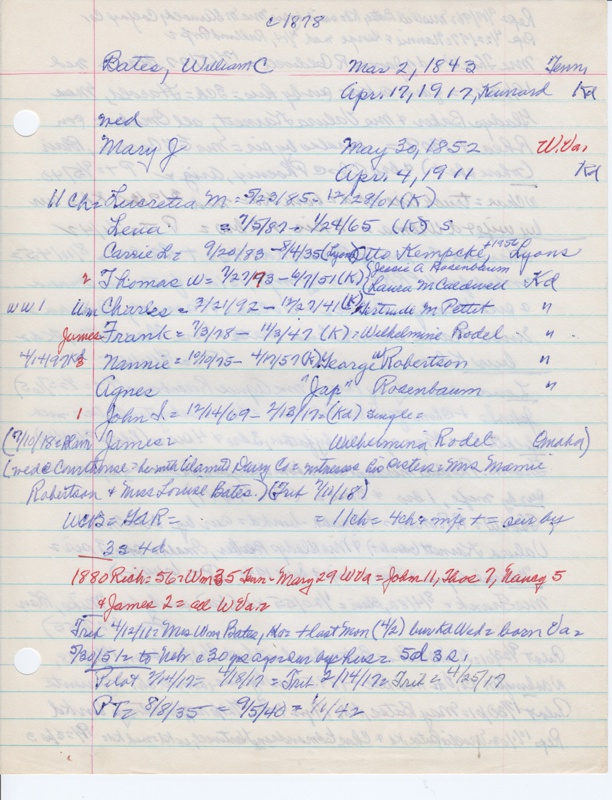 c1878
Bates, William C Mar 2, 1843 Tenn,
Apr. 17, 1917, Kennard Kd
wed
Mary J May 30, 1852 W.Va,
Apr. 4, 1911 Kd
11 Ch = Lucretia M = 5/23/85 - 12/29/61 (K)
Lena = 7/5/87 - 1/24/65 (K) S
Carrie L = 9/20/83 - 8/4/35 (Lyons) Otto Kempcke, +1956 Lyons
2 Thomas W = 7/27/73 - 6/7/51 (K) (Jessie A Rosenbaum (Laura McCaldwed Kd
WW1 Wm Charles = 3/21/92 - 12/27/41 (K) Gertrude M Pettit "
James Frank = 7/3/78 - 11/3/47 (K) = Wilhelmine Rodel "
4/14/97 Kd 3 Nannie = 10/9/75 - 4/7/57 (K) George W Robertson "
Agnes "Jap" Rosenbaum "
1 John S. = 12/14/69 - 2/13/17 = (Kd) single =
(7/10/18 = Blair James = Wilhelmina Rodel Omaha)
(wed @ Courthouse = he with Alamito Dairy Co = witnesses his sisters = Mrs Mamie
Robertson & Miss Louise Bates.) (Trib 7/11/18)
WCB = GAR = = 11ch = 4ch = wife + = sur by
3s 4d
1880 Rich = 56 = Wm 35 Tenn - Mary 29 WVa = John 11, Thos 7, Nancy 5
& James 2 = all WVa =
Trib 4/12/11 = Mrs Wm Bates, Ho = + last Mon (4/2) buried Wed = born Va =
5/30/51 = to Nebr c 30 yrs ago = sur by hus = 5d 3s,
Pilot 2/14/17 = 4/18/17 = Trib 2/14/17 = Trib = 4/25/17
PT = 8/8/35 = 9/5/40 = 1/1/42